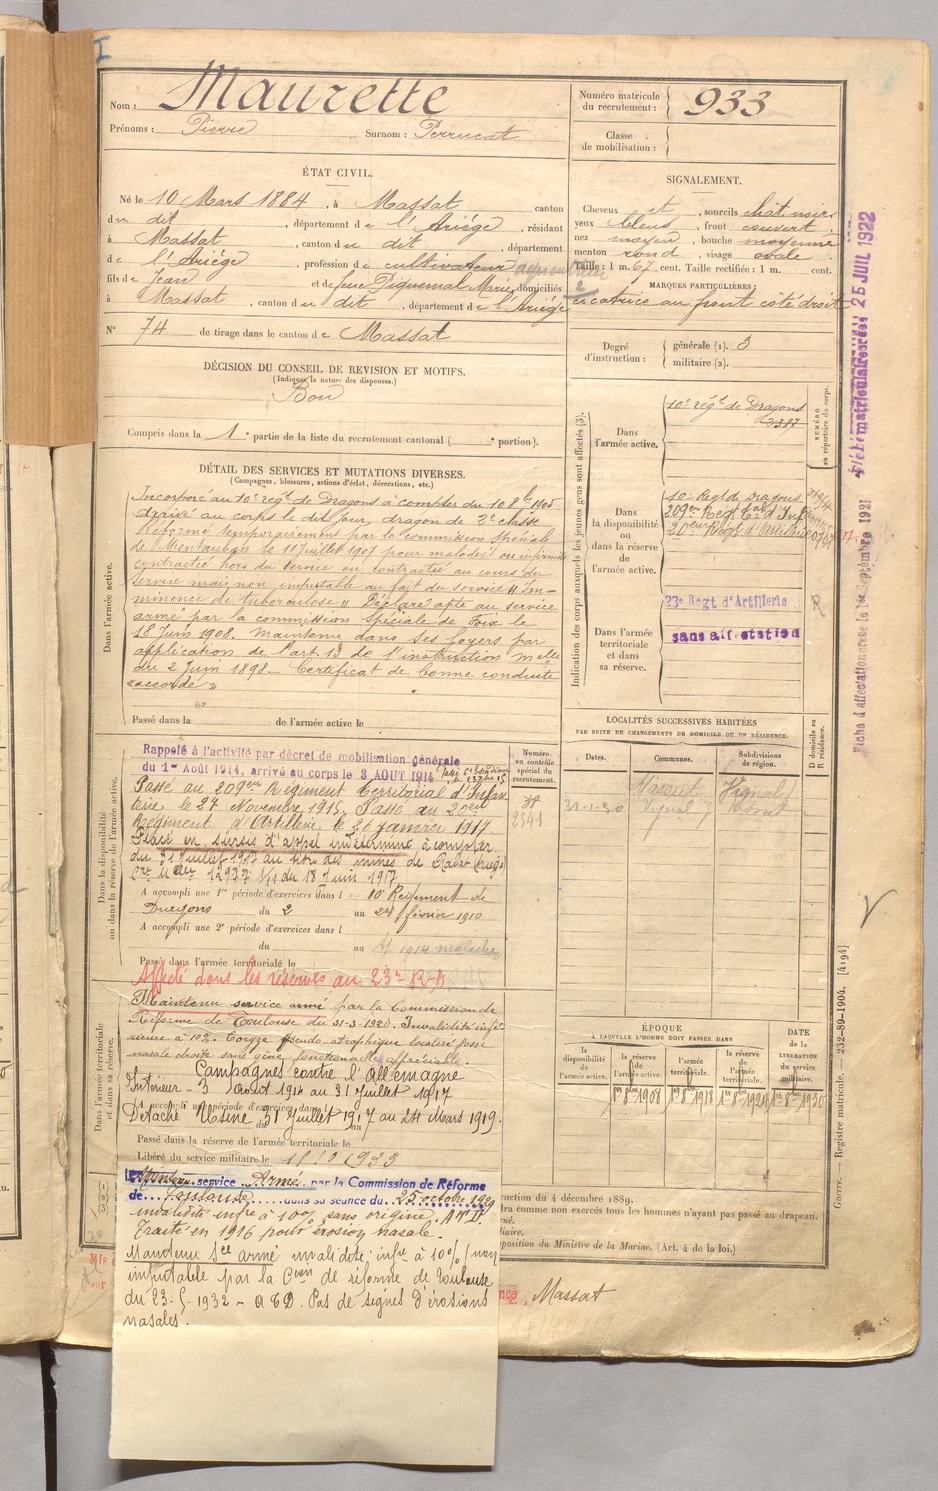 I
Nom : Maurette
Prénoms : Pierre Surnom : Perrucat
Numéro matricule du recrutement : 933
Classe de mobilisation :
ÉTAT CIVIL.
Né le 10 Mars 1884, à Massat canton
du dit, département de l'Ariége, résidant
à Massat, canton du dit, département
de l'Ariége, profession de cultivateur
fils de Jean et de feue Piquemal Marie, domiciliés
à Massat, canton du dit, département de l'Ariége
N° 74 de tirage dans le canton de Massat
SIGNALEMENT.
Cheveux et, sourcils chât noirs
yeux bleus, front couvert
nez moyen, bouche moyenne
menton rond, visage ovale
Taille : 1 m. 67 cent. Taille rectifiée : 1 m. cent.
MARQUES PARTICULIÈRES :
cicatrice au front côté droit
DÉCISION DU CONSEIL DE REVISION ET MOTIFS.
(Indiquer la nature des dispenses.)
Bon
Compris dans la 1e partie de la liste du recrutement cantonal ( e portion).
Degré d'instruction : générale (1). 3
militaire (2).
DÉTAIL DES SERVICES ET MUTATIONS DIVERSES.
(Campagnes, blessures, actions d'éclat, décorations, etc.)
Dans l'armée active.
Incorporé au 10e régt de Dragons à compter du 10 8bre 1905
arrivé au corps le dit jour, dragon de 2e classe
Réformé temporairement par la commission spéciale
de Montauban le 11 Juillet 1907 pour maladies ou infirmités
contractée hors du service ou contractée au cours du
service mais non imputable au fait du service "Im-
minence de tuberculose" Déclaré apte au service
armé par la commission spéciale de Foix le
18 Juin 1908. Maintenu dans ses foyers par
application de l'art. 13 de l'instruction melle
du 2 Juin 1898. Certificat de bonne conduite
"accordé"
Passé dans la de l'armée active le
Indication des corps auxquels les jeunes gens sont affectés (3).
NUMÉRO au répertoire du corps.
Dans l'armée active.
10e régt de Dragons
2387
Dans la disponibilité ou dans la réserve de l'armée active.
10e Regt de Dragons
209e Regt Tal d'Inf
20eme Regt d'Artillerie
Dans l'armée territoriale et dans sa réserve.
23e Regt d'Artillerie R
sans affectation
LOCALITÉS SUCCESSIVES HABITÉES
PAR SUITE DE CHANGEMENTS DE DOMICILE OU DE RÉSIDENCE.
Dates. Communes. Subdivisions de région. D domicile ou R résidence.
Massat
31-1-30
Dans la disponibilité ou dans la réserve de l'armée active.
Numéro au contrôle spécial du recrutement.
2541
Rappelé à l'activité par décret de mobilisation générale
du 1er Août 1914, arrivé au corps le 3 AOUT 1914
Passé au 209eme Régiment Territorial d'Infan
terie le 27 Novembre 1915, Passé au 20eme
Régiment d'Artillerie le 26 janvier 1917.
Placé en sursis d'appel indéterminé à compter
du 31 Juillet 1917 au titre des mines de Rabat Ariège
du 18 Juin 1917
A accompli une 1re période d'exercices dans le 10e Régiment de
Dragons du 2 au 24 février 1910
A accompli une 2e période d'exercices dans l
du au 1914 malade
Passé dans l'armée territoriale le
Affecté dans les réserves au 23e R.A
Dans l'armée territoriale et dans sa réserve.
Maintenu service armé par la Commission de
Réforme de Toulouse du 31-3-1920. Invalidité infé-
rieure à 10%. Coryza pseudo-atrophique localisé fosse
nasale droite sans gêne fonctionnelle appréciable.
Campagnes contre l'Allemagne
Intérieur - 3 Août 1914 au 31 Juillet 1917
A accompli une période d'exercices dans
Détaché Usine 31 Juillet 1917 au 24 Mars 1919.
Passé dans la réserve de l'armée territoriale le
Libéré du service militaire le 1933
Maintenu service Armé par la Commission de Réforme
de Toulouse dans sa séance du 25 octobre 1929
invalidité infre à 10% sans origine.
Traité en 1916 pour érosion nasale.
Maintenu Sce armé invalidité infre à 10% (non
imputable par la Cion de réforme de Toulouse
du 23-5-1932 - Pas de signes d'érosions
nasales.
ÉPOQUE
À LAQUELLE L'HOMME DOIT PASSER DANS
la disponibilité de l'armée active. la réserve de l'armée active. l'armée territoriale. la réserve de l'armée territoriale. DATE de la LIBÉRATION du service militaire.
1er 8bre 1908 1er 8bre 1918 1er 8bre 1924 1er 8bre 1930
ruction du 4 décembre 1889.
dra comme non exercés tous les hommes n'ayant pas passé au drapeau.
rné.
iliaire.
sposition du Ministre de la Marine. (Art. 4 de la loi.)
Massat
Guerre. — Registre matricule. — 232-89-1904. [4194]
Fiche d'affectation creee le 1er Septembre 1921
25 JUIL 1922